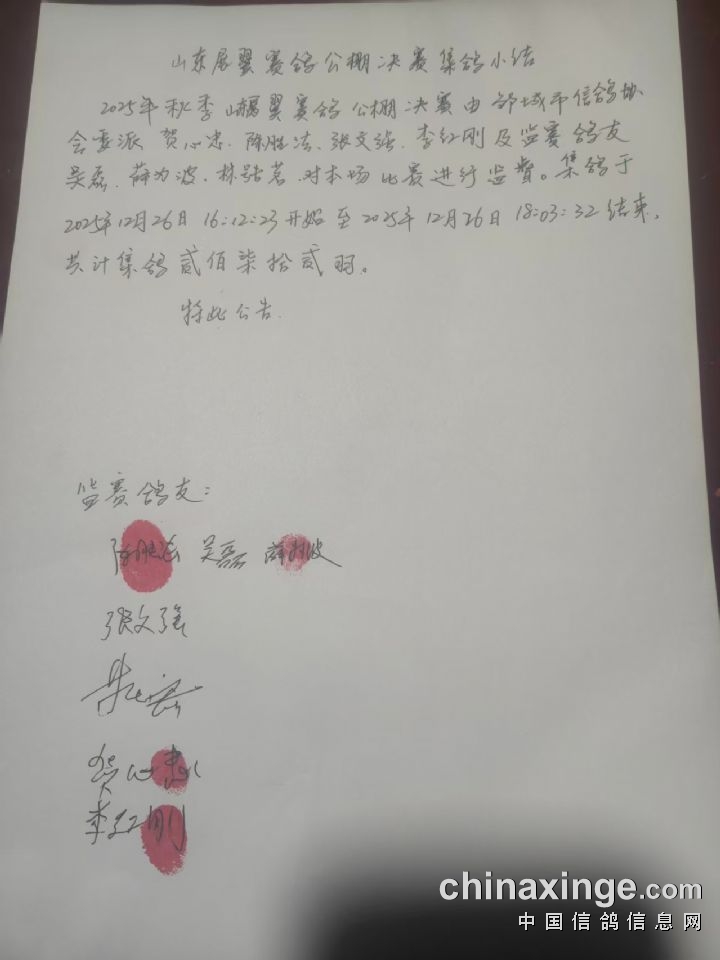 山东展翼赛鸽公棚决赛集鸽小结
2025年秋季山东展翼赛鸽公棚决赛由邹城市信鸽协
会委派贺心忠、陈胜法、张文强、李红刚及监赛鸽友
吴磊、薛为波、林 对本场比赛进行监赛。集鸽于
2025年12月26日16:12:23开始至2025年12月26日18:03:32结束,
共计集鸽贰佰柒拾贰羽。
特此公告.
监赛鸽友:
陈胜法 吴磊 薛为波
张文强
贺心忠
李红刚
chinaxinge.com
中国信鸽信息网